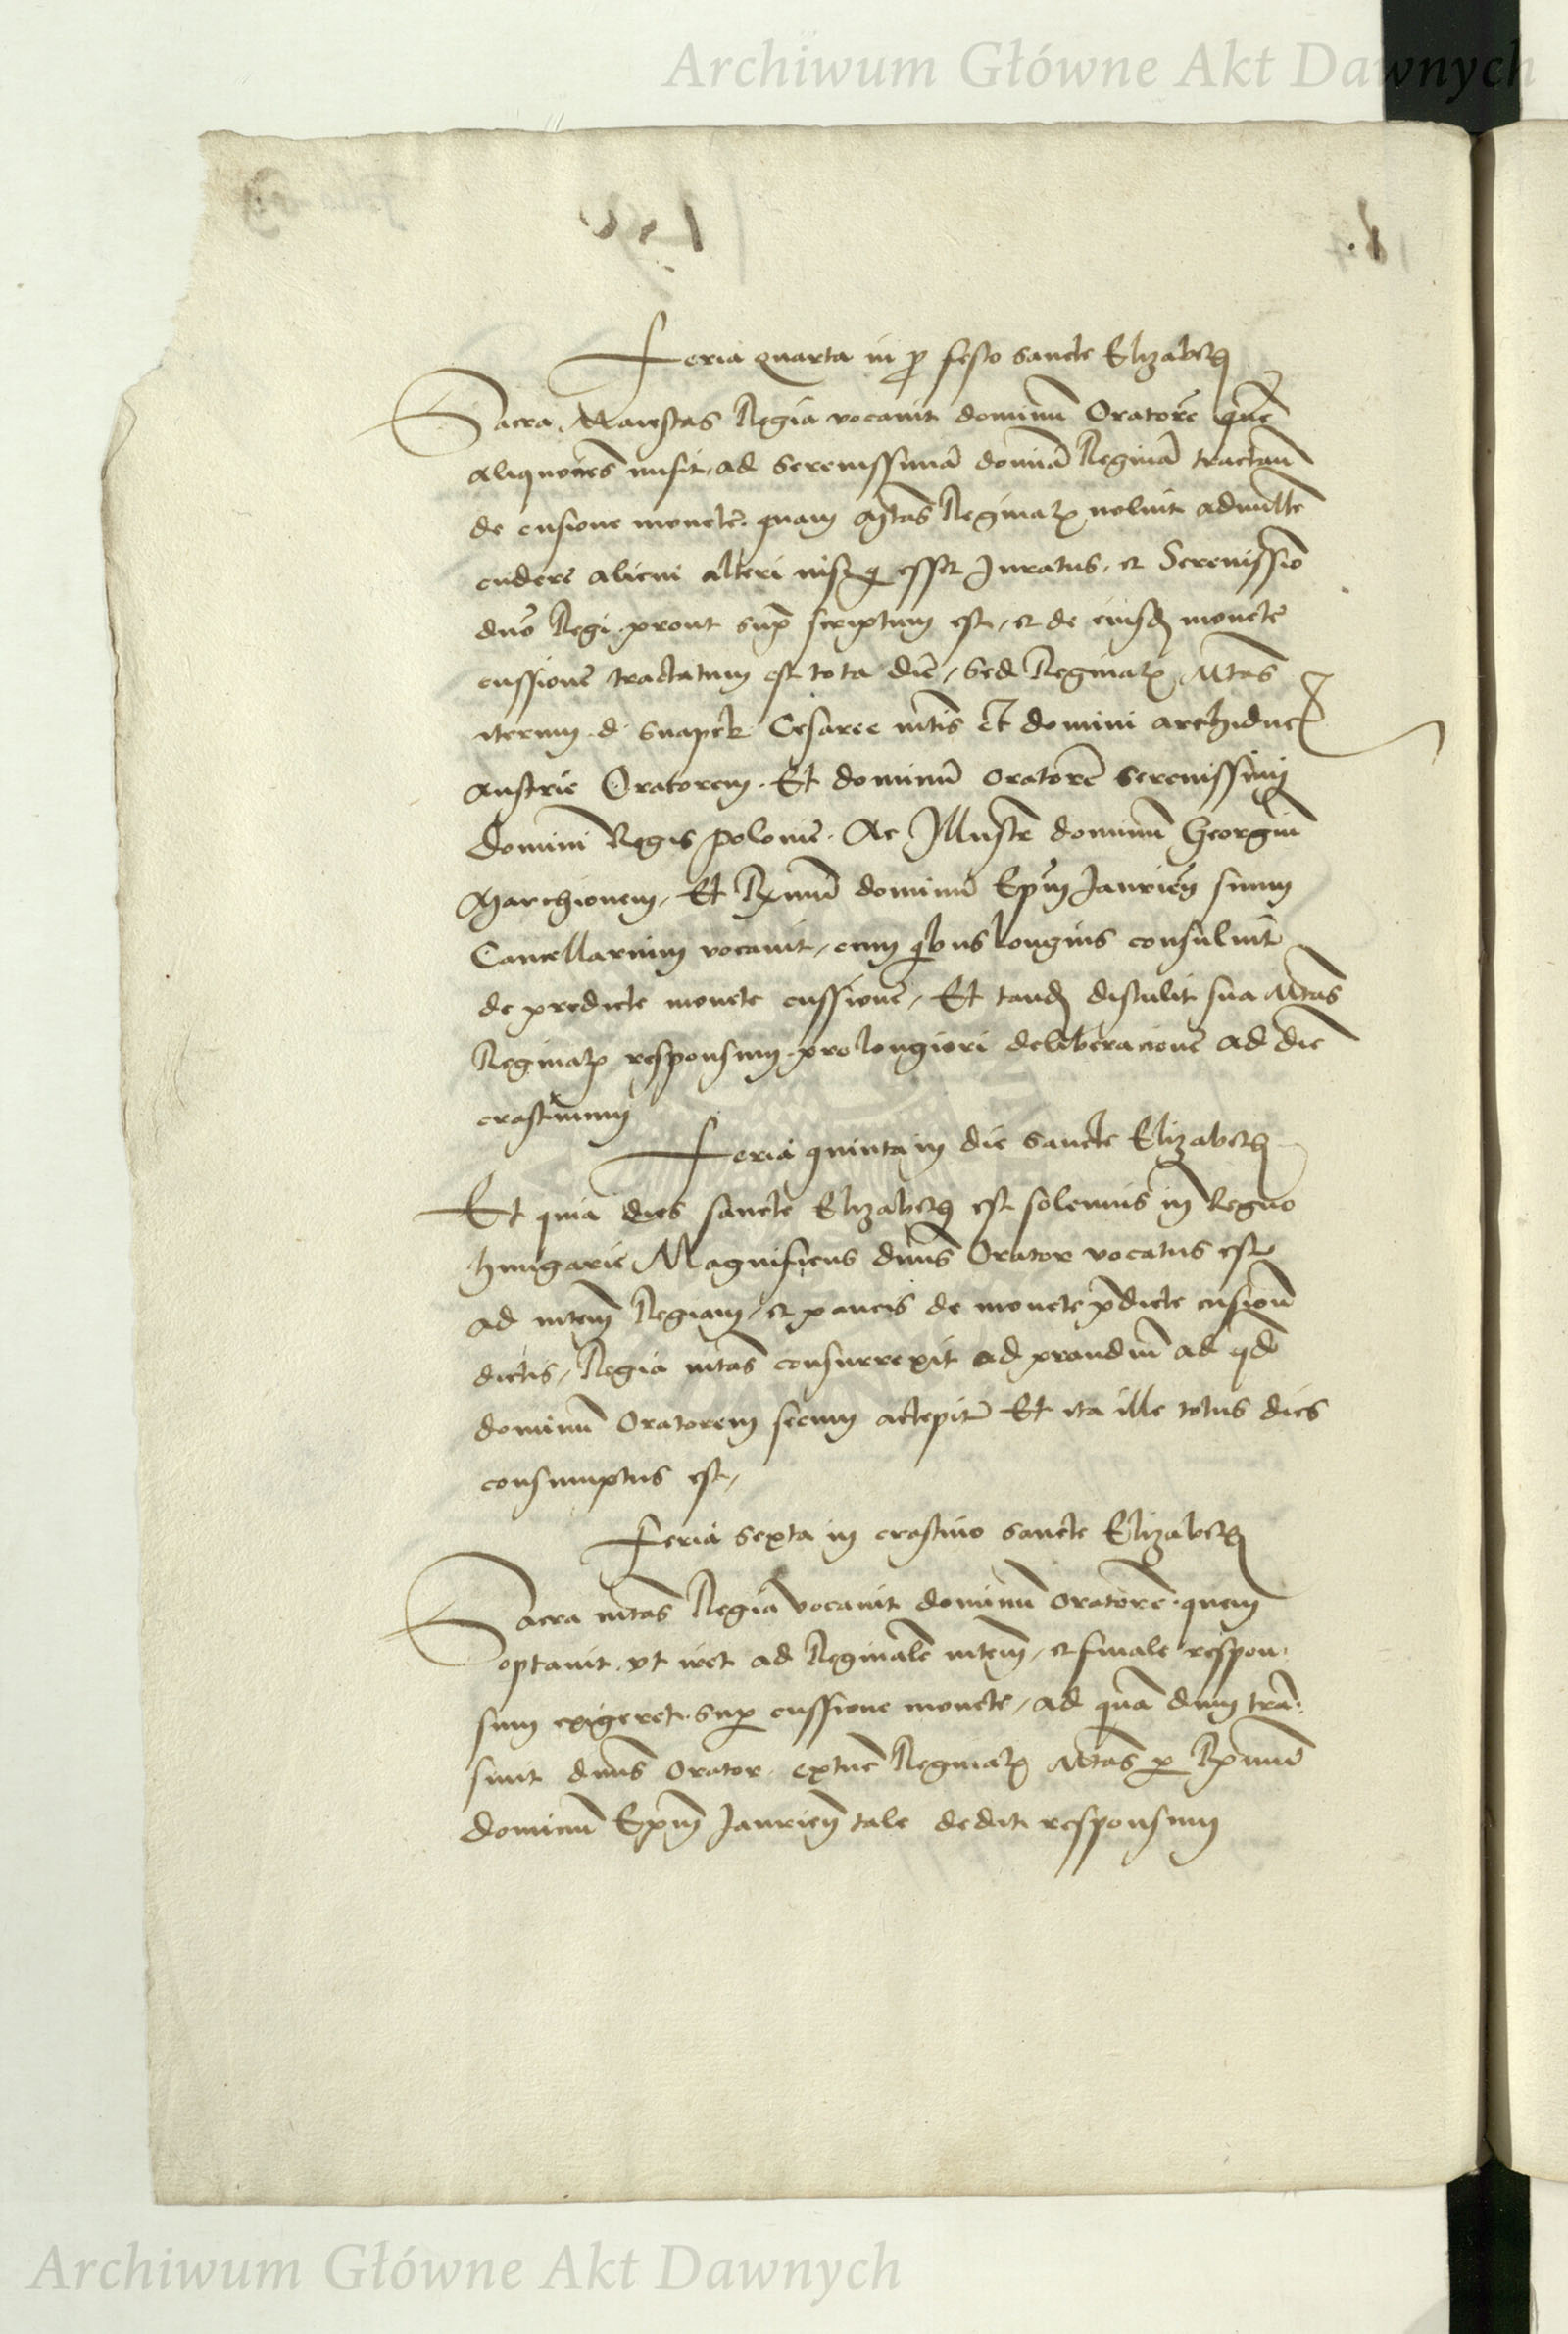 Archiwum Główne Akt Dawnych
Feria quarta in p̱ festo sancte Elizabeth
Sacra Maiestas Regia vocauit dominū Oratorē quē
aliquocies misit ad serenissimā dominā Reginā tractan̄
de cusione monete quam Mtas Reginal' noluit admitte
cudere alicui alteri nisi q esset Juratus et Serenissīo
dn̄o Regi prout supͣ scriptum est, et de eiusd monete
cussione tractatum est tota die, sed Reginal' Mtas
iterum d. snapek Cesaree mtis et domini archiduc
austrie Oratorem. Et dominū oratorē serenissimi
domini Regis polonie. Ac Illustrē dominū Georgiū
Marchionem, Et Rx̄mū dominū Ep̄m Jaurien̄ suum
Cancellarium vocauit, cum qͥbus longius consuluit
de predicte monete cussione, Et tand distulit sua Mtas
Reginal' responsum pro longiori deliberacione ad diē
crastinum
Feria quinta in die sancte Elizabeth
Et quia dies sancte Elizabeth est solennis in Regno
hungarie Magnificus dn̄us Orator vocatus est
ad mtem Regiam, et paucis de monete p̄dicte cusionē
dictis, Regia mtas consurrexit ad prandiū ad qd
dominū Oratorem secum accepit Et ita ille totus dies
consumptus est,
Feria sexta in crastino sancte Elizabeth
Sacra mtas Regia vocauit dominū oratorē quem
optauit vt iret ad Reginalē mtem, et finale respon
sum exigeret sup cussione monete, ad quā dum trā
siuit dn̄us orator extunc Reginal' Mtas p Rx̄mū
dominū Ep̄m Jaurien̄ tale dedit responsum
Archiwum Główne Akt Dawnych